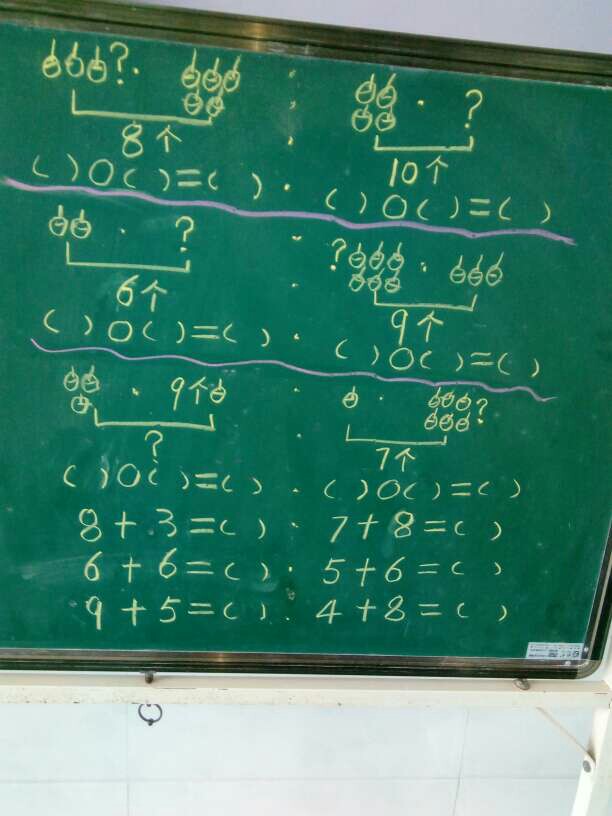 ? ·
8个
·
?
10个
( )○( )=( ) · ( )○( )=( )
· ?
6个
· ? ·
9个
( )○( )=( ) · ( )○( )=( )
· 9个
?
· · ?
7个
( )○( )=( ) · ( )○( )=( )
8+3=( ) · 7+8=( )
6+6=( ) · 5+6=( )
9+5=( ) · 4+8=( )